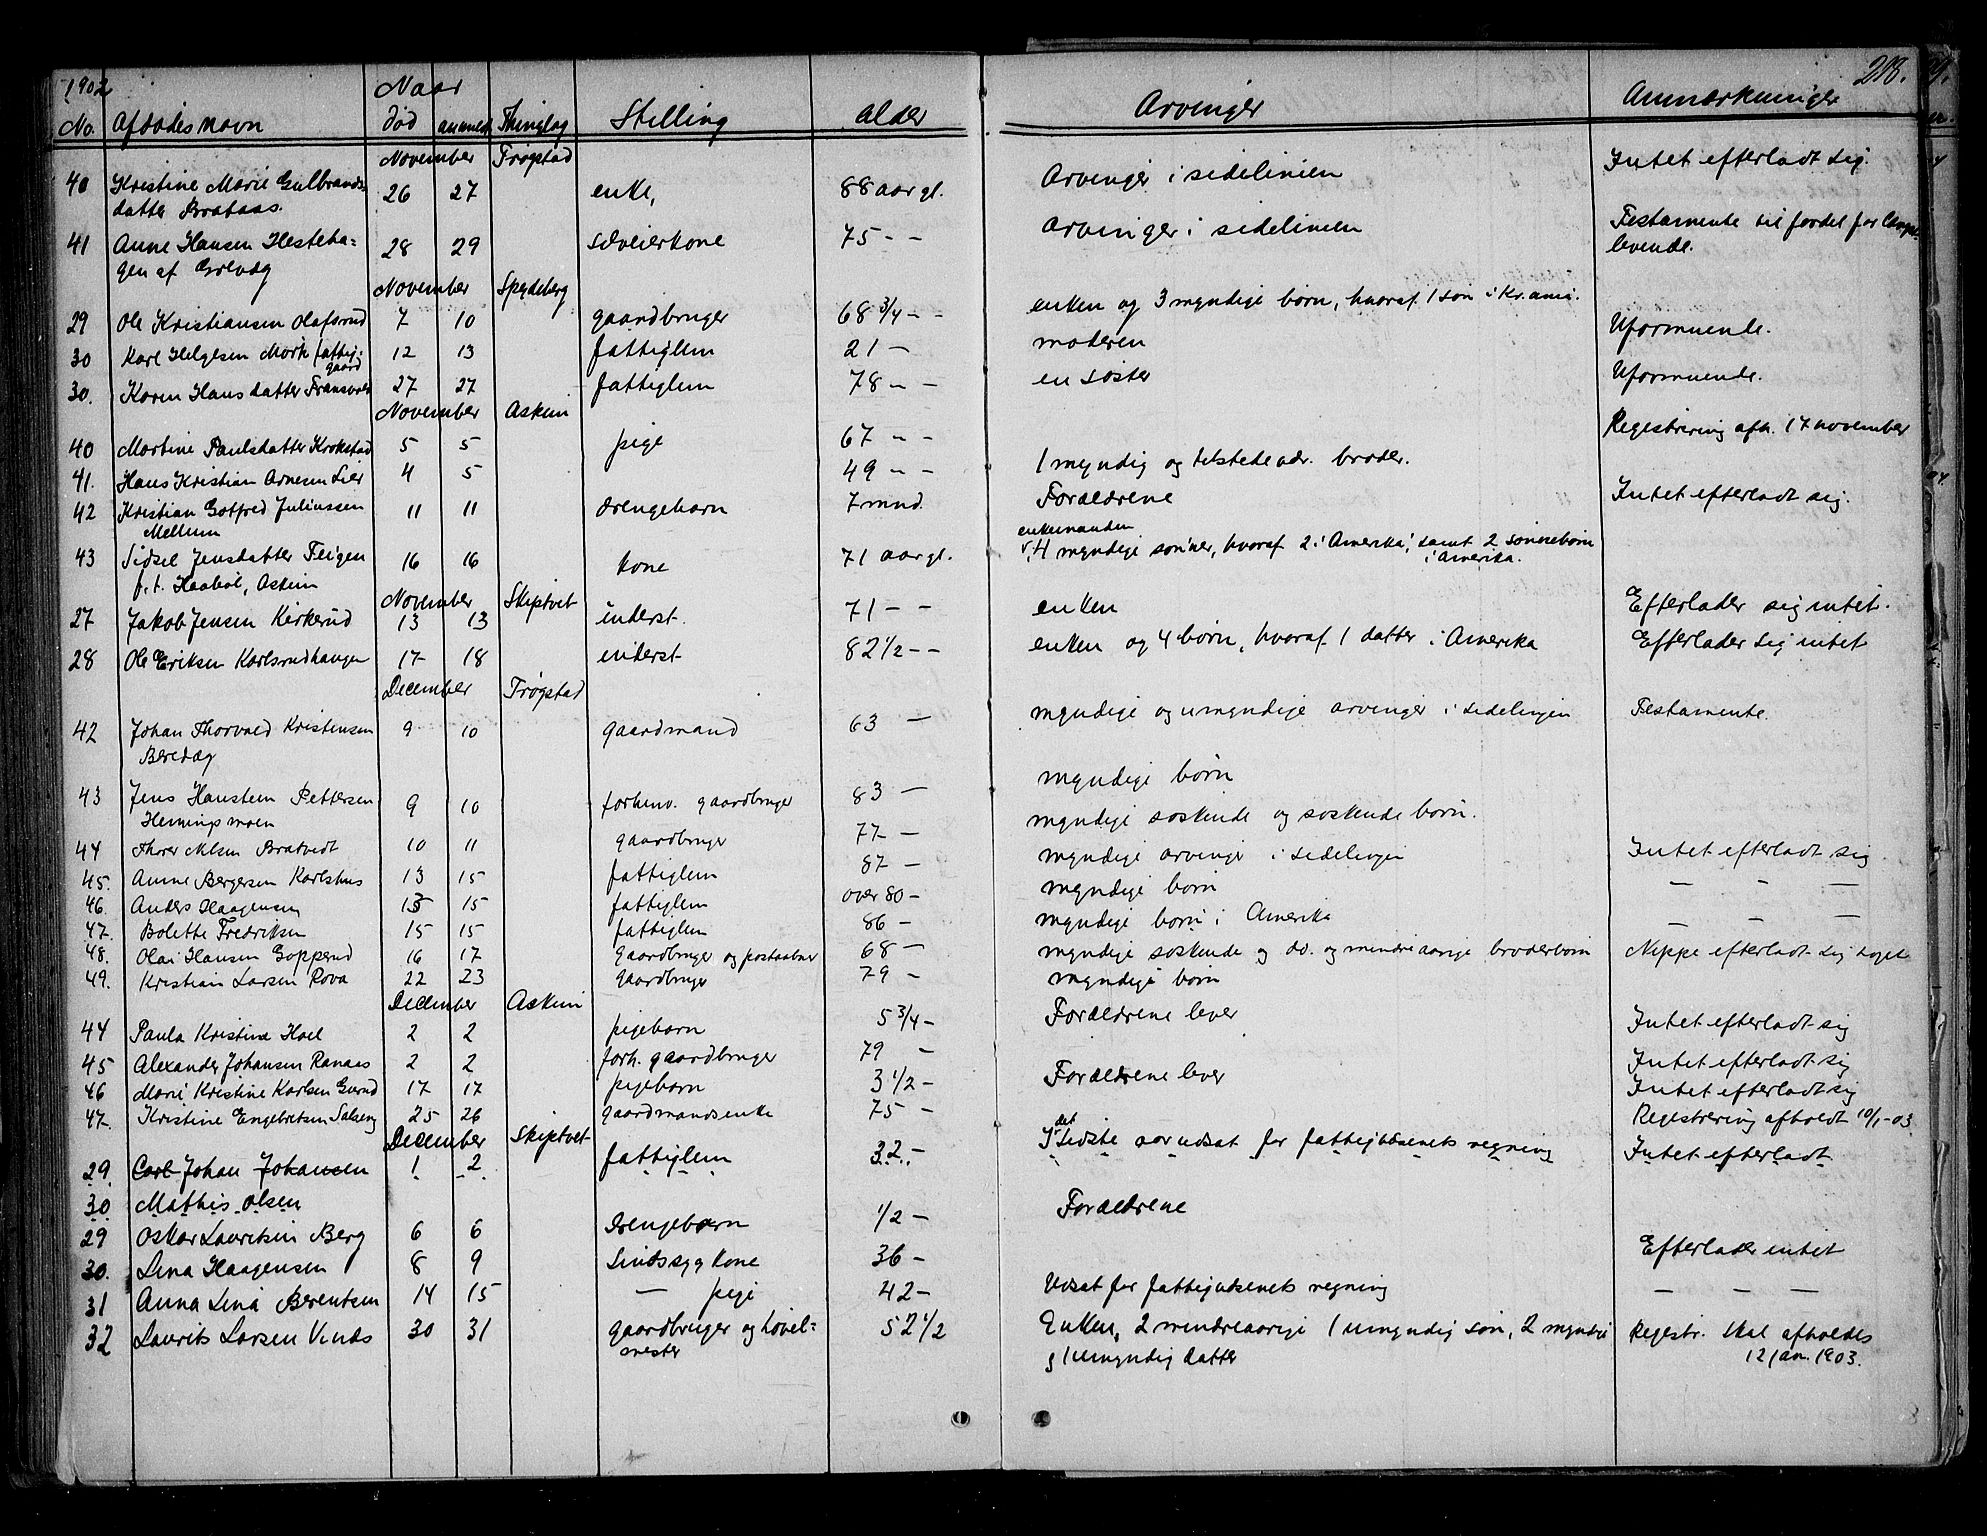 1902 218.
No. Afdødes navn Naar død anmeldt Thinglag Stilling alder Arvinger Anmærkninger
November Trøgstad
40 Kristine Marie Gulbrands- 26 27 enke, 88 aar gl. Arvinger i sidelinien Intet efterladt sig.
datter Brataas.
41 Anne Hansen Hesteha- 28 29 selveierkone 75 - - Arvinger i sidelinien Testamente til fordel for længst-
gen af levende.
November Spydeberg
29 Ole Kristiansen Olafsrud 7 10 gaardbruger 68 3/4 - - enken og 3 myndige børn, hvoraf 1 søn i Kr.ania.
30 Karl Helgesen Mørk fattig- 12 13 fattiglem 21 - moderen Uformuende.
gaard
30. Karen Hansdatter 27 27 fattiglem 78 - - en søster Uformuende.
November Askim
40 Martine Paulsdatter Krokstad 5 5 pige 67 - - Registrering afh. 17 november
41. Hans Kristian Arnesen Lier 4 5 49 - - 1 myndig og tilstedevær. broder.
42 Kristian Gotfred Juliussen 11 11 drengebarn 7 mnd. Forældrene Intet efterladt sig.
Mellum
43 Sidsel Jensdatter Feigen 16 16 kone 71 aar gl. enkemanden, 4 myndige søn'ner, hvoraf 2 i Amerika, samt 2 sønnebørn
f. t. Haabøl, Askim i Amerika.
November Skiptvet
27 Jakob Jensen Kirkerud 13 13 inderst. 71 - - enken Efterlader sig intet.
28 Ole Eriksen Karlsrudhaugen 17 18 inderst 82 1/2 - - enken og 4 børn, hvoraf 1 datter i Amerika Efterlader sig intet
December Trøgstad
42 Johan Thorvald Kristensen 9 10 gaardmand 63 - myndige og umyndige arvinger i sidelinjen Testamente.
43 Jens Hansteen Pettersen 9 10 forhenv. gaardbruger 83 - myndige børn
Herningsmoen
44 Thorer Nilsen Bratvedt 10 11 gaardbruger 77 - myndige søskende og søskende børn.
45. Anne Bergersen Karlshus 13 15 fattiglem 87 - myndige arvinger i sidelinjen Intet efterladt sig.
46. Anders Haagensen 13 15 fattiglem over 80 - myndige børn - - -
47. Bolette Fredriksen 15 15 fattiglem 86 - myndige børn i Amerika - - -
48. Olai Hansen Gopperud 16 17 Gaardbruger og postaabner 68 - myndige søskende og do. og mindreaarige broderbørn Neppe efterladt sig noget
49. Kristian Larsen Rova 22 23 Gaardbruger 79 - myndige børn
December Askim
44 Paula Kristine Hoel 2 2 pigebarn 5 3/4 - Forældrene lever Intet efterladt sig
45 Alexander Johansen Ranaas 2 2 forh. gaardbruger 79 - Intet efterladt sig
46 Marie Kristine Karlsen 17 17 pigebarn 3 1/2 - Forældrene lever Intet efterladt sig
47. Kristine Engebretsen 25 26 gaardmandsenke 75 - Registrering afholdt 10/1-03
December Skiptvet
29 Carl Johan Johansen 1 2 fattiglem 32 - I det sidste aar udsat for fattigvæsenets regning Intet efterladt
30 Mathis Olsen
29 Oskar Lauritsen Berg 6 6 Drengebarn 1/2 - Forældrene
30. Lina Haagensen 8 9 Sindssyg kone 36 - Efterlader intet
31 Anna Lina Berentsen 14 15 - pige 42 - Udsat for fattigvæsenets regning - - -
32 Laurits Larsen Vinds 30 31 gaardbruger og høvel- 52 1/2 Enken, 2 mindreaarige 1 umyndig søn, 2 myndige Registr. skal afholdes
mester g 1 umyndig datter 12 jan. 1903.